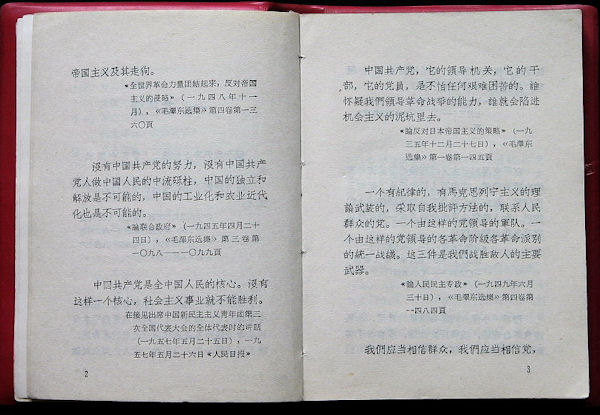 帝国主义及其走狗。
*全世界革命力量团结起来，反对帝国
主义的侵略》（一九四八年十一
月），《毛澤东选集》第四卷第一三
六〇頁
沒有中国共产党的努力，沒有中国共产
党人做中国人民的中流砥柱，中国的独立和
解放是不可能的，中国的工业化和农业近代
化也是不可能的。
《論联合政府》（一九四五年四月二十
四日），《毛澤东选集》第三卷第
一〇九八——一〇九九頁
中国共产党是全中国人民的核心。沒有
这样一个核心，社会主义事业就不能胜利。
在接见出席中国新民主主义青年团第三
次全国代表大会的全体代表时的讲話
（一九五七年五月二十五日），一九
五七年五月二十六日《人民日报》
2
中国共产党，它的領导机关，它的干
部，它的党員，是不怕任何艰难困苦的。誰
怀疑我們領导革命战爭的能力，誰就会陷进
机会主义的泥坑里去。
《論反对日本帝国主义的策略》（一九
三五年十二月二十七日），《毛澤东
选集》第一卷第一四五頁
一个有紀律的，有馬克思列宁主义的理
論武装的，采取自我批評方法的，联系人民
群众的党。一个由这样的党領导的軍队。一
个由这样的党領导的各革命阶級各革命派別
的統一战綫。这三件是我們战胜敌人的主要
武器。
《論人民民主专政》（一九四九年六月
三十日），《毛澤东选集》第四卷第
一四八四頁
我們应当相信群众，我們应当相信党，
3